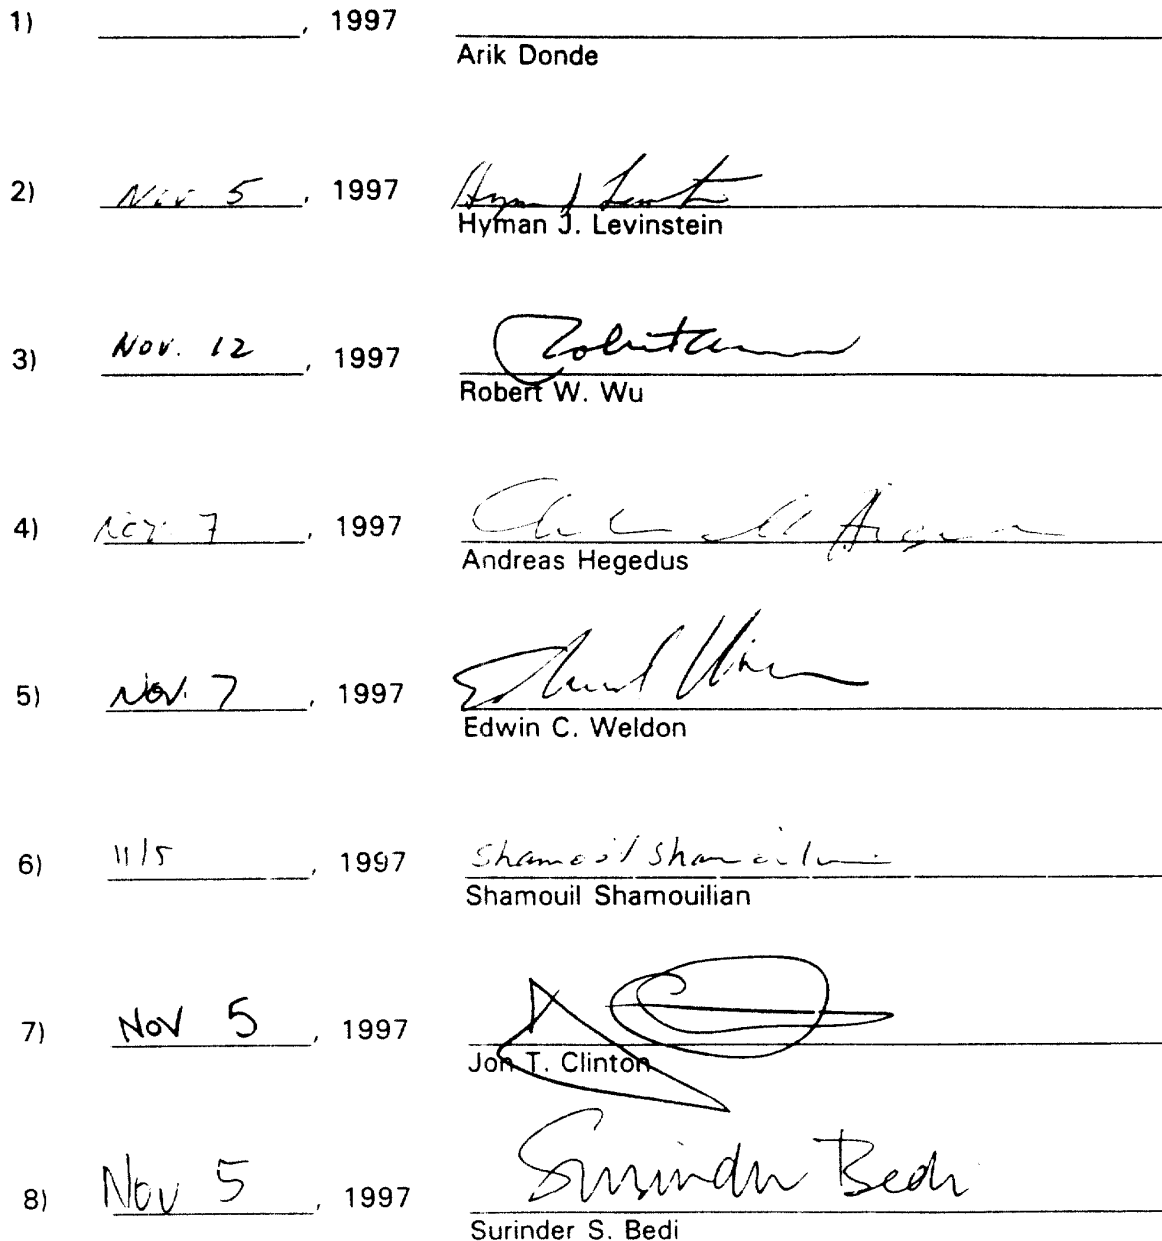 1) ____________, 1997 ____________
Arik Donde
2) Nov 5, 1997 Hyman J Levinstein
Hyman J. Levinstein
3) Nov. 12, 1997
Robert W. Wu
4) Nov. 7, 1997
Andreas Hegedus
5) Nov. 7, 1997
Edwin C. Weldon
6) 11/5, 1997 Shamouil Shamouilian
Shamouil Shamouilian
7) Nov 5, 1997
Jon T. Clinton
8) Nov 5, 1997 Surinder Bedi
Surinder S. Bedi